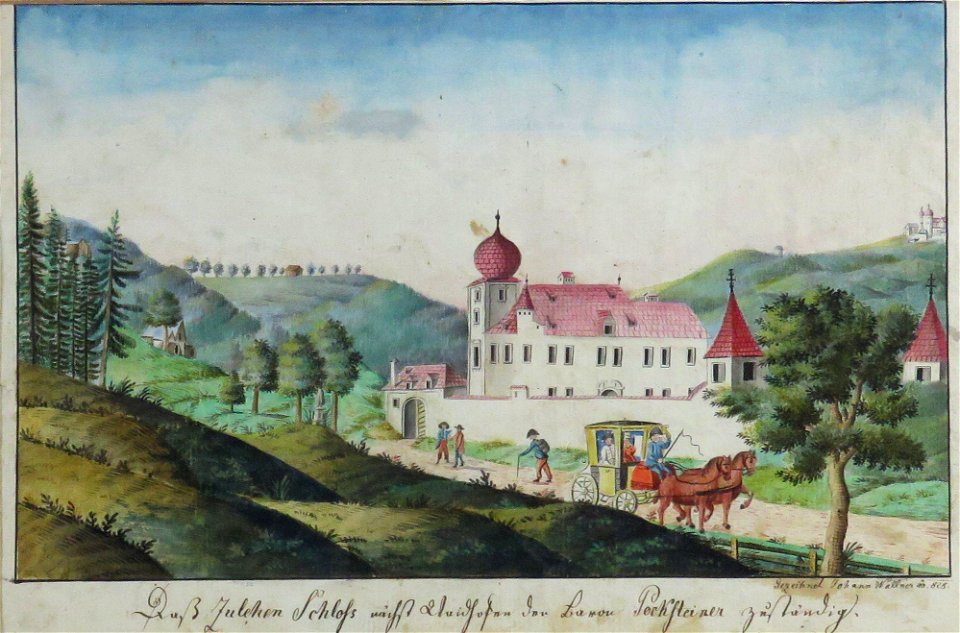 Gezeichnet Johann Wallner
Daß Zulehen Schloß nächst Waidhofen der Baron Pocksteiner zuständig.